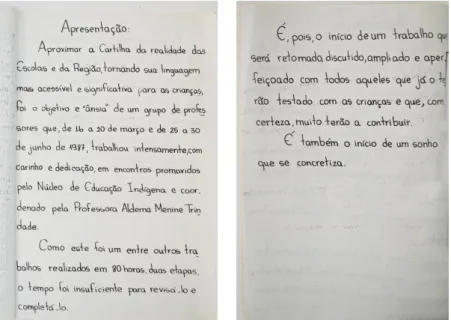 Apresentação:
Aproximar a Cartilha da realidade das
Escolas e da Região, tornando sua linguagem
mais acessível e significativa para as crianças,
foi o objetivo e "ânsia" de um grupo de profes
sores que, de 16 a 20 de março e de 25 a 30
de junho de 1987, trabalhou intensamente, com
carinho e dedicação, em encontros promovidos
pelo Núcleo de Educação Indígena e coor.
denado pela Professora Aldema Menine Trin
dade.
Como este foi um entre outros tra
balhos realizados em 80 horas, duas etapas,
o tempo foi insuficiente para revisá-lo e
completá-lo.
É, pois, o início de um trabalho que
será retomado, discutido, ampliado e aper
feiçoado com todos aqueles que já o te
rão testado com as crianças e que, com
certeza, muito terão a contribuir.
É também o início de um sonho
que se concretiza.